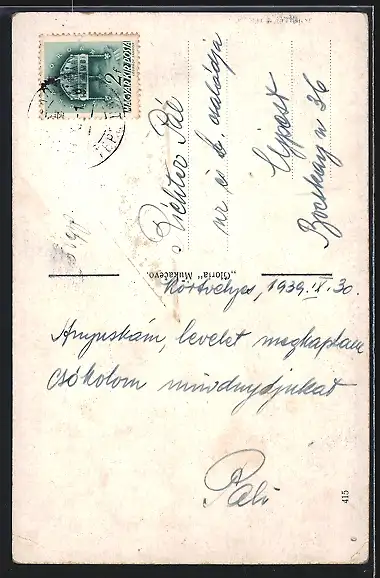 2
MAGYAR POSTA
Richter Pál
úr és b. családja
Újpest
Bocskay u 36
"Gloria" Mukačevo.
Körtvélyes, 1939. IX. 30.
Anyuskám, levelet megkaptam
csókolom mindnyájukat
Pali
415